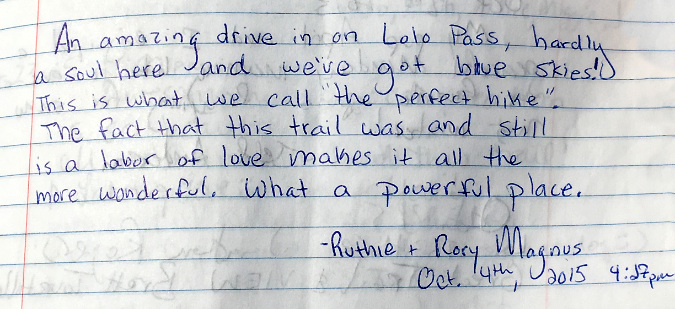 An amazing drive in on Lolo Pass, hardly
a soul here and we've got blue skies!
This is what we call "the perfect hike".
The fact that this trail was and still
is a labor of love makes it all the
more wonderful. What a powerful place.
-Ruthie + Rory Magnus
Oct. 4th, 2015 4:27pm